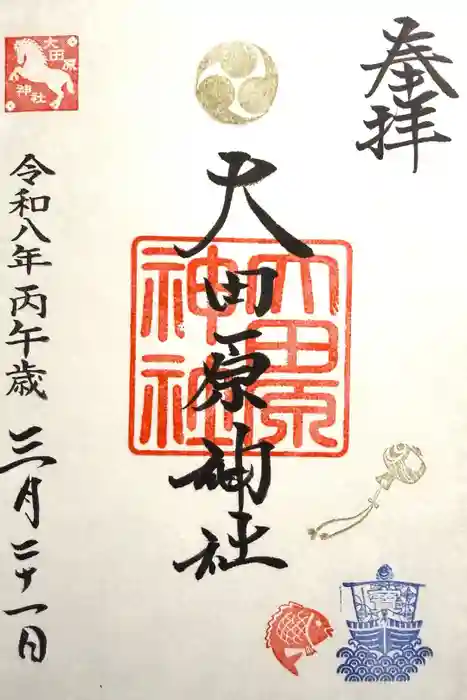 奉拝
大田原神社
大田原
神社
令和八年丙午歳
三月二十一日
大田原
神社
寳